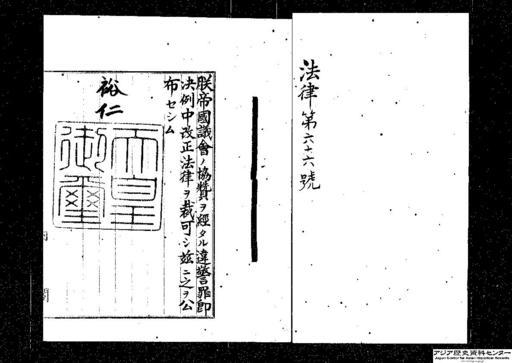 法律第六十六號
朕帝國議會ノ協賛ヲ經タル違警罪即
決例中改正法律ヲ裁可シ茲ニ之ヲ公
布セシム
裕仁
天皇
御璽
内閣
アジア歴史資料センター
Japan Center for Asian Historical Records